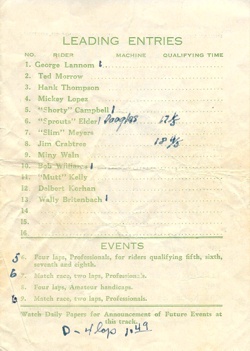 LEADING ENTRIES
NO. RIDER MACHINE QUALIFYING TIME
1. George Lannom
2. Ted Morrow
3. Hank Thompson
4. Mickey Lopez
5. "Shorty" Campbell
6. "Sprouts" Elder Douglas
7. "Slim" Meyers
8. Jim Crabtree
9. Miny Waln
10. Bob
11. "Mutt" Kelly
12. Delbert Kerhan
13. Wally Breitenbach
14.
15.
16.
EVENTS
5 Four laps, Professionals, for riders qualifying fifth, sixth, seventh and eighth.
6 7. Match race, two laps, Professionals.
8. Four laps, Amateur handicap.
9. Match race, two laps, Professionals.
Watch Daily Papers for Announcement of Future Events at
this track.
D - 4 lap 1.49